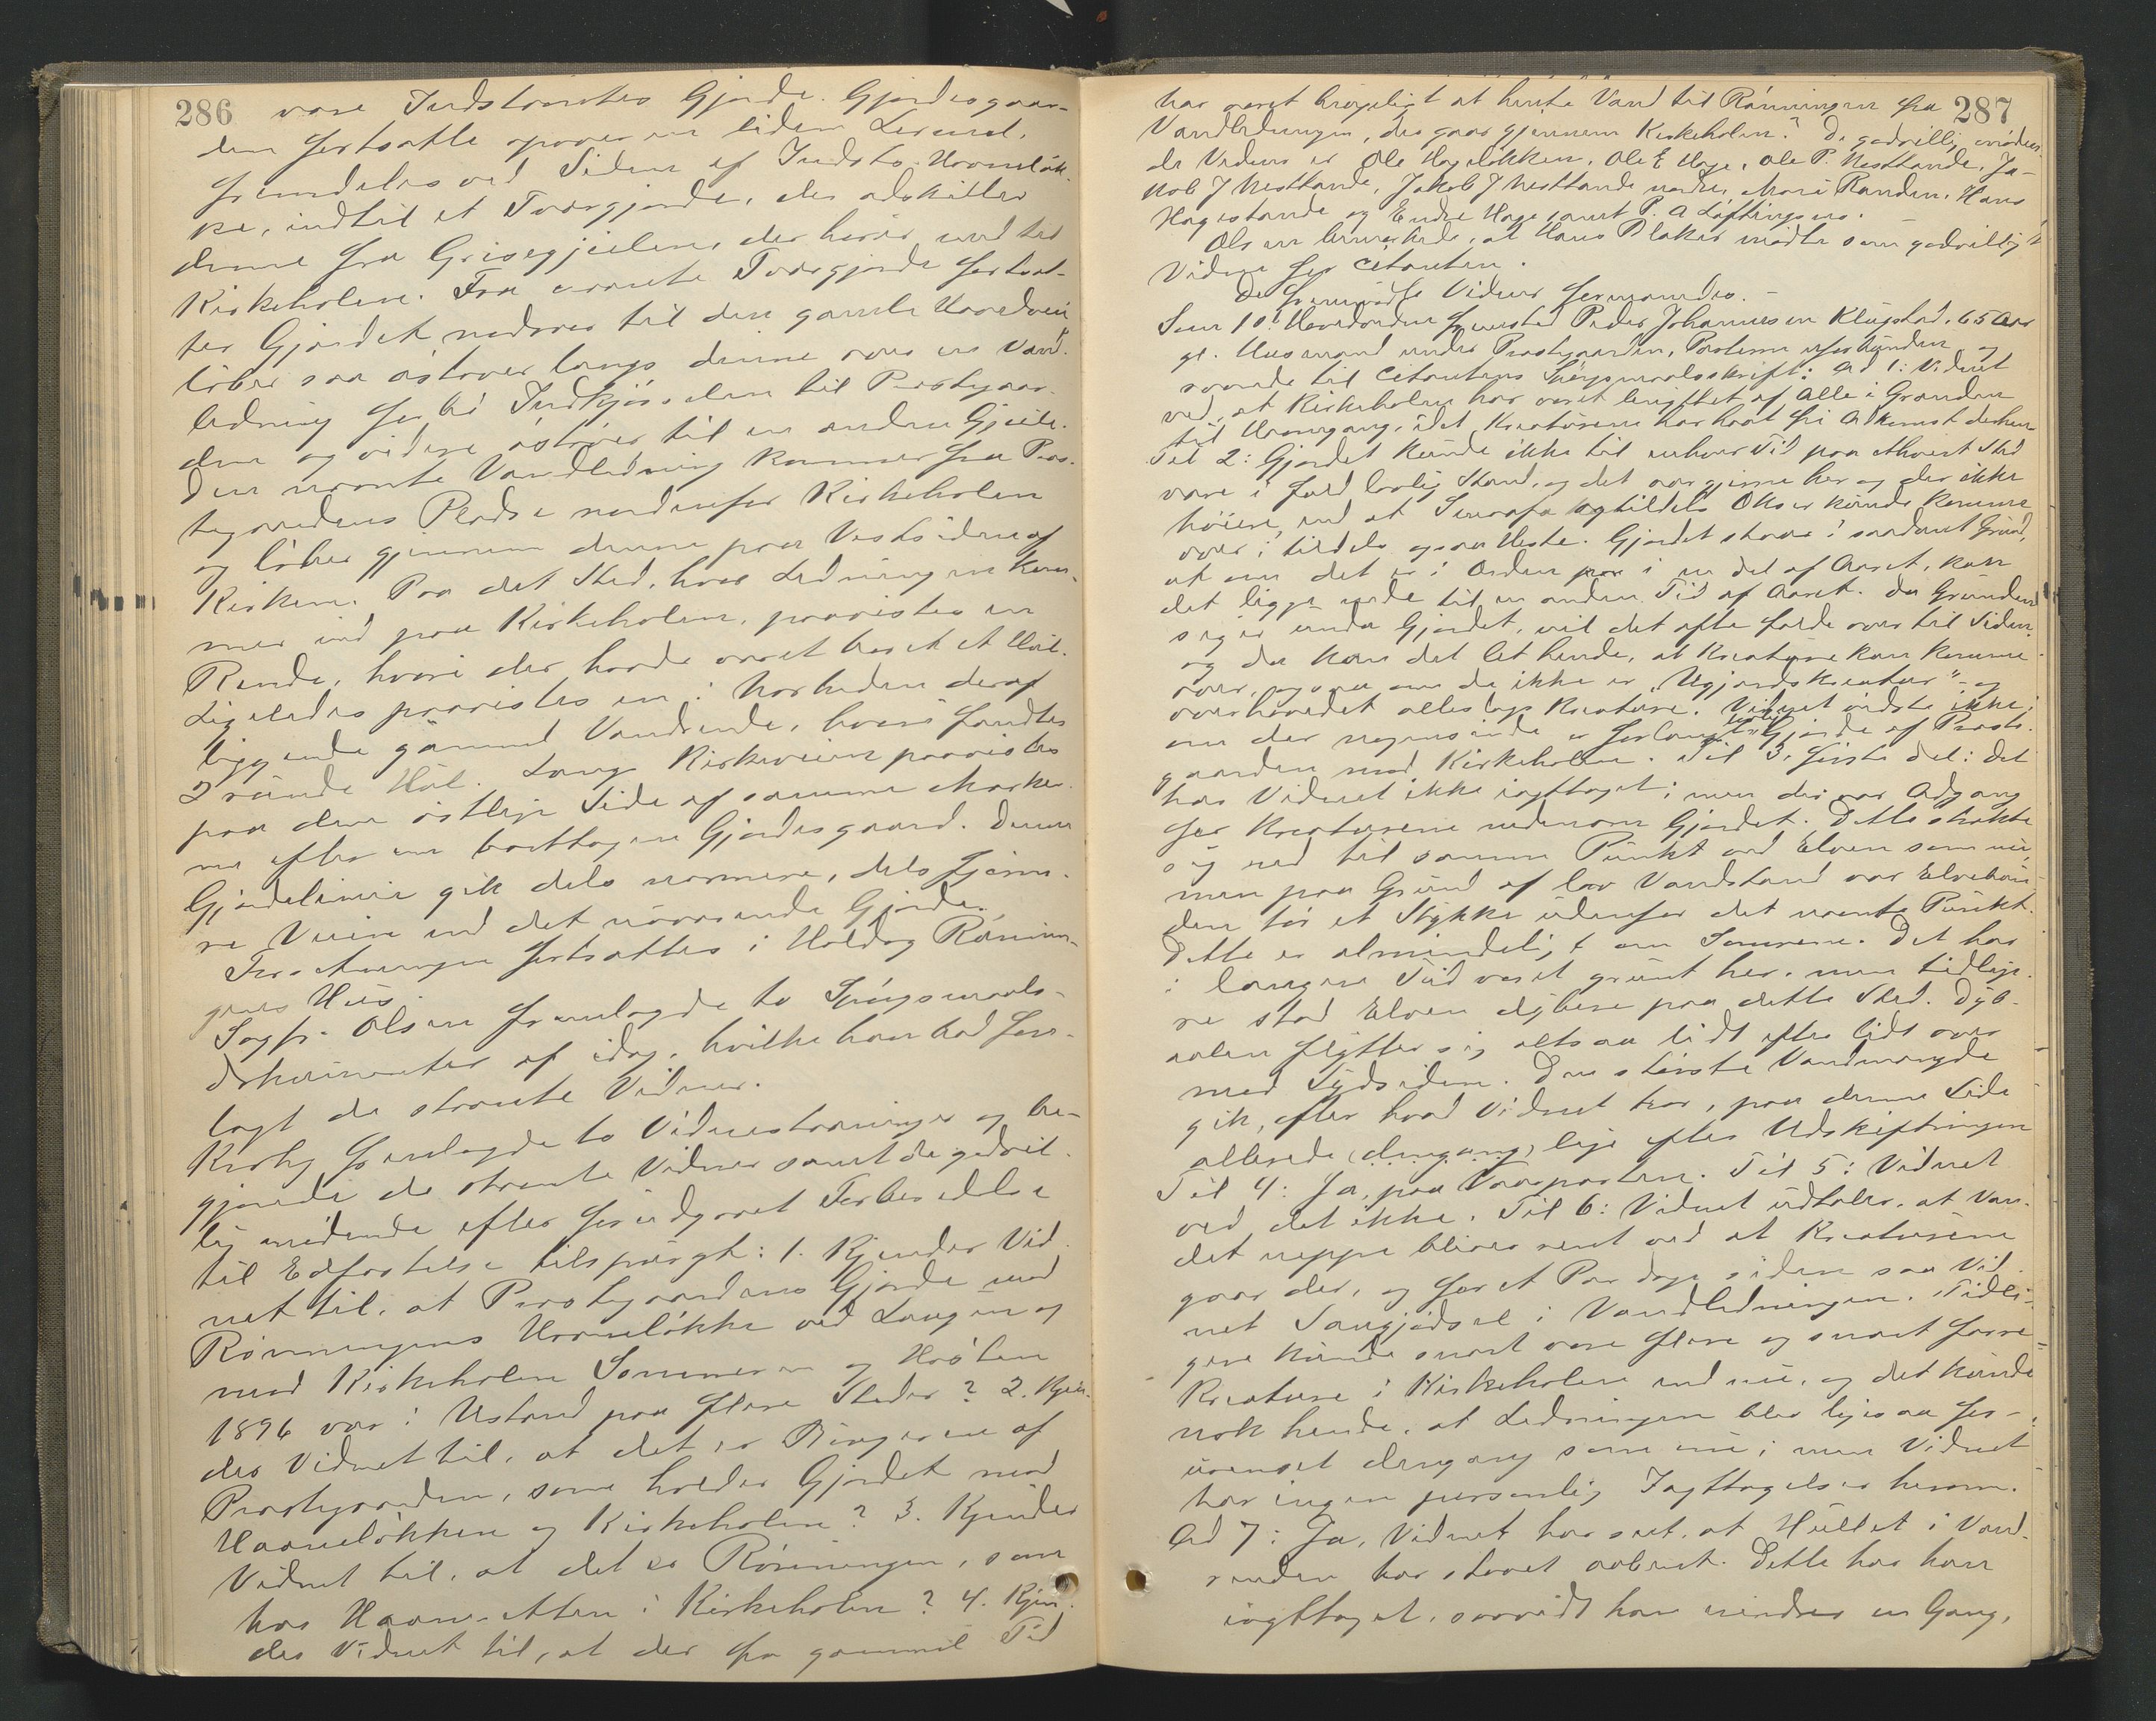 286
være Indstansties Gjærde. Gjærdesgaar-
den fortsatte opover en liden Lerend,
fremdeles ved Siden af Indsto. Havneløk-
ke, indtil et Tværgjærde, der adskiller
denne fra Grisegjeilen, der hører ind til
Kirkeholen. Fra nævnte Tværgjærde fortsæt-
ter Gjærdet nedover til den gamle Hovedvei
løber saa østover langs denne over en Vand-
ledning forbi Indkjørselen til Præstegaar-
den og videre østover til en anden Gjeile.
Den nævnte Vandledning kommer fra Præ-
stegaardens Plads nordenfor Kirkeholen
og løber gjennem denne paa Vestsiden af
Kirken. Paa det Sted, hvor Ledningen kom-
mer ind paa Kirkeholen, paavistes en
Rende, hvori der havde været boret et Hul.
Ligeledes paavistes en i Nærheden deraf
liggende gammel Vandrende, hvori fandtes
2 runde Hul. Langs Kirkeveien paavistes
paa den østlige Side af samme Mærker-
ne efter en borttagen Gjærdesgaard. Denne
Gjærdelinie gik dels nærmere, dels fjerne-
re Veien end det nuværende Gjærde.
Forretningen fortsattes i Halvdag Rønnin-
gens Hus.
Sagf. Olsen fremlagde to Spørgsmaals-
dokumenter af idag, hvilke han bad fore-
lagt de stævnte Vidner.
Kirby fremlagde to Vidnestævninger og be-
gjærede de stævnte Vidner samt de godvil-
lig mødende efter forudgaaet Forberedelse
til Edfæstelse tilspurgt: 1. Kjender Vid-
net til, at Præstegaardens Gjærde mod
Rønningens Havneløkke ved Laugen og
mod Kirkeholen Sommeren og Høsten
1896 var i Ustand paa flere Steder? 2. Kjen-
der Vidnet til, at det er Brugeren af
Præstegaarden, som holder Gjærdet mod
Havneløkken og Kirkeholen? 3. Kjender
Vidnet til, at det er Rønningen, som
har Havneretten i Kirkeholen? 4. Kjen-
der Vidnet til, at der fra gammel Tid
287
har været brugeligt at hente Vand til Rønningen fra
Vandledningen, der gaar gjennem Kirkeholen? De godvillig møden-
de Vidner er Ole Hageløkken, Ole E Hage, Ole P. Nestlande, Ja-
kob J Nestlande, Jakob J Nestlande nedre, Mari Randen, Hans
Hagestande og Endre Hage samt P. A Løftingsmo.
Olsen bemærkede, at Hans Blaker mødte som godvilligt
Vidne for Citanten.
De fremmødte Vidner formanedes.
Som 1ste Hovedvidne fremstod Peder Johannesen Klugstad, 65 Aar
gl. Husmand under Præstegaarden, Parterne uforbunden og
svarede til Citantens Spørgsmaalsskrift: Ad 1: Vidnet
ved, at Kirkeholen har været benyttet af Alle i Grænden
til Havnegang, idet Kreaturene har havt fri Adkomst derhen.
Til 2: Gjærdet kunde ikke til enhver Tid paa ethvert Sted
være i fuld lovlig Stand, og det var gjerne her og der ikke
høiere, end at Smaafæ og tildels Okser kunde komme
over i tildels ogsaa Heste. Gjærdet staar i saadant Grund,
at om det er i Orden paa i en del af Aaret, kan
det ligge nede til en anden Tid af Aaret. Da Grunden
siger under Gjærdet, vil det ofte falde over til Siden,
og da kan det let hende, at Kreaturene kan komme
over, ogsaa om de ikke er „Ugjærdskreatur" og
overhovedet alleslags Kreature. Vidnet vidste ikke,
om der nogensinde er forlangt lovligt Gjærde af Præste-
gaarden mod Kirkeholen. Til 3. første del: Det
har Vidnet ikke iagttaget; men der var Adgang
for Kreaturene nedenom Gjærdet. Dette strakte
sig ned til samme Punkt ved Elven som nu,
men paa Grund af lav Vandstand var Elvebun-
den tør et Stykke udenfor det nævnte Punkt.
Dette er almindeligt om Somrene. Det har
i længere Tid været grunt her, men tidlige-
re stod Elven dybere paa dette Sted. Dyb-
aalen flytter sig altsaa lidt efter lidt over
mod Sydsiden. Den største Vandmængde
gik, efter hvad Vidnet tror, paa denne Side
allerede (dengang) lige efter Udskiftningen
Til 4: Ja, paa Vaarparten. Til 5: Vidnet
ved det ikke. Til 6: Vidnet udtaler, at Van-
det neppe bliver rent ved at Kreaturene
gaar der, og for et Par dage siden saa Vid-
net Saugjødsel i Vandledningen. Tidli-
gere kunde snart være flere og snart færre
Kreature i Kirkeholen end nu, og det kunde
nok hende, at Ledningen blev ligesaa for-
urenset dengang som nu; men Vidnet
har ingen personlig Iagttagelse herom.
Ad 7: Ja, Vidnet har seet, at Hullet i Vand-
renden har staaet aabent. Dette har han
iagttaget, saavidt han mindes en Gang,